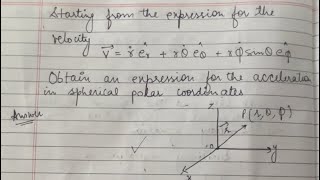 Starting from the expression for the
velocity
v⃗ = ṙ êr + rθ̇ êθ + rφ̇ sinθ êφ
Obtain an expression for the acceleration
in spherical polar coordinates
Answer
z
P(r, θ, φ)
r⃗
o
y
x